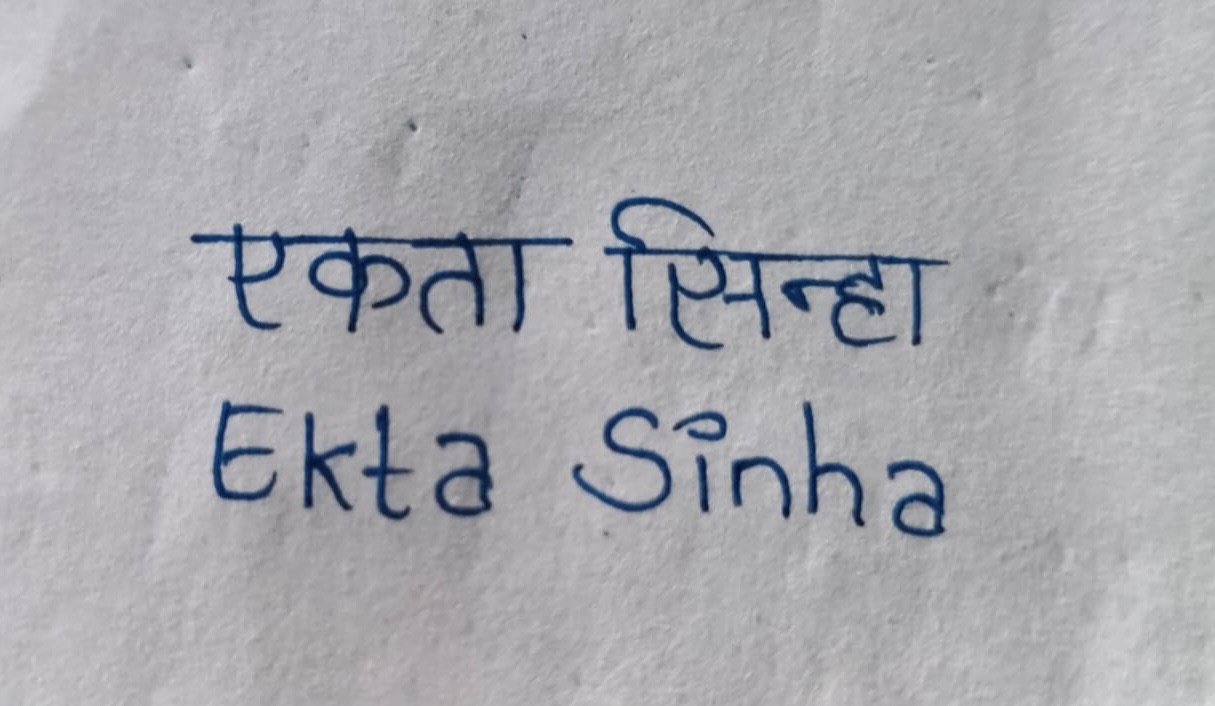 एकता सिन्हा
Ekta Sinha